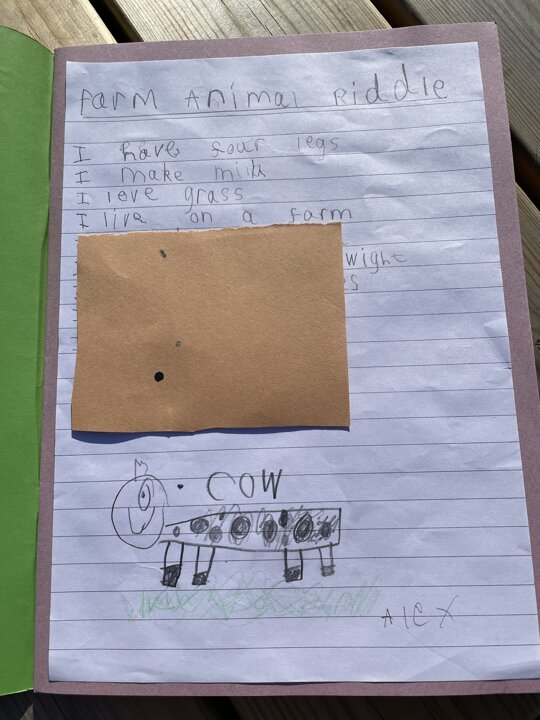 Farm Animal Riddle
I have four legs
I make milk
I love grass
I live on a farm
wight
es
COW
Alex